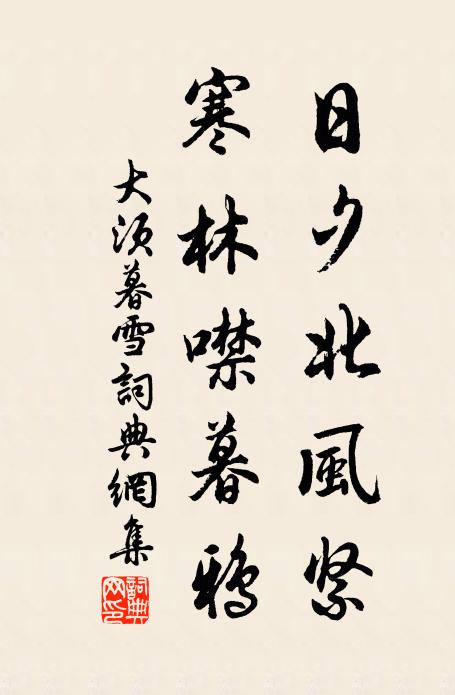 日夕北風緊
寒林噤暮鴉
大須暮雪詞典網集
詞典網印